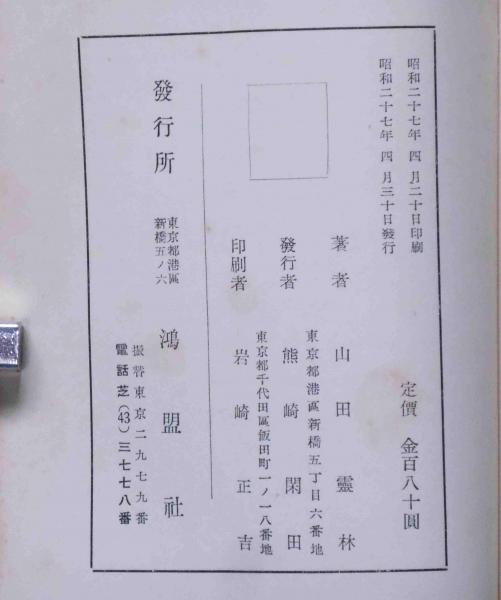 昭和二十七年 四月二十日印刷
昭和二十七年 四月三十日發行
定價 金百八十圓
著者 山田靈林
東京都港區新橋五丁目六番地
發行者 熊崎閑田
東京都千代田區飯田町一ノ一八番地
印刷者 岩崎正吉
發行所 東京都港區新橋五ノ六 鴻盟社
振替東京二九七九番
電話芝(43)三七七八番